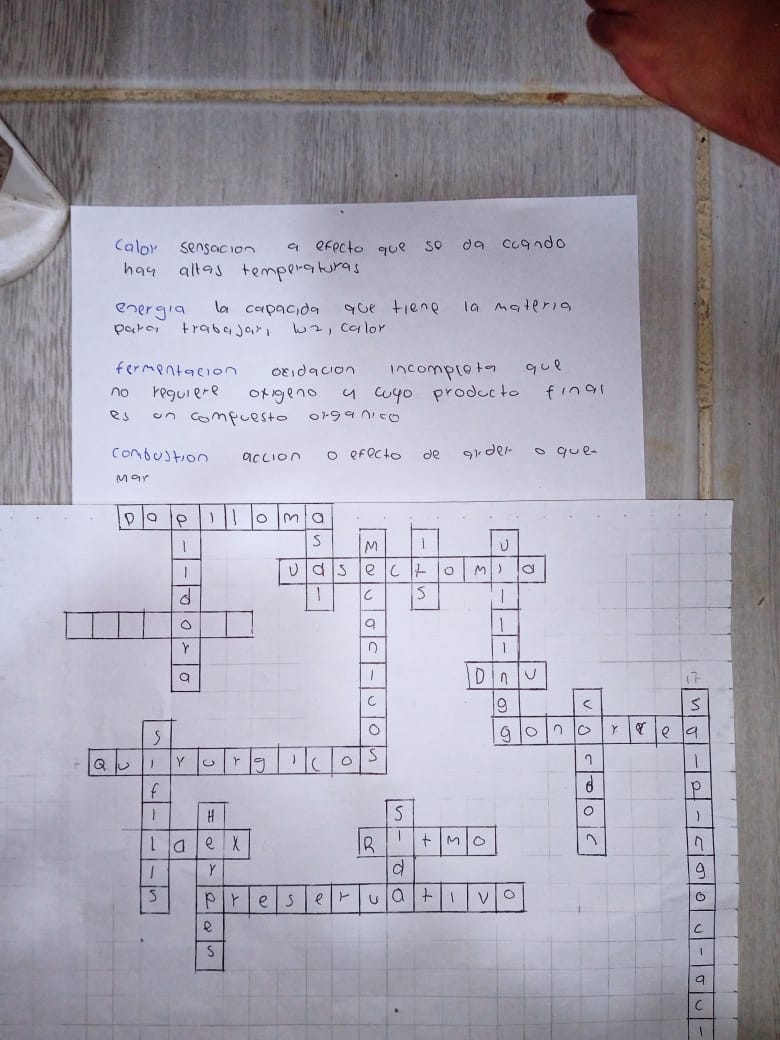 calor sensacion a efecto que se da cuando
hay altas temperaturas
energia la capacida que tiene la materia
para trabajar, luz, calor
fermentacion oxidacion incompleta que
no requiere oxigeno y cuyo producto final
es un compuesto organico
combustion accion o efecto de arder o que-
mar
papiloma
asal
pildora
Mecanicos
its
vasectomia
Uilling
DIU
17
condon
gonorrea
salpingociaci
sifilis
Quirurgicos
Herpes
Latex
Sida
Ritmo
preservativo